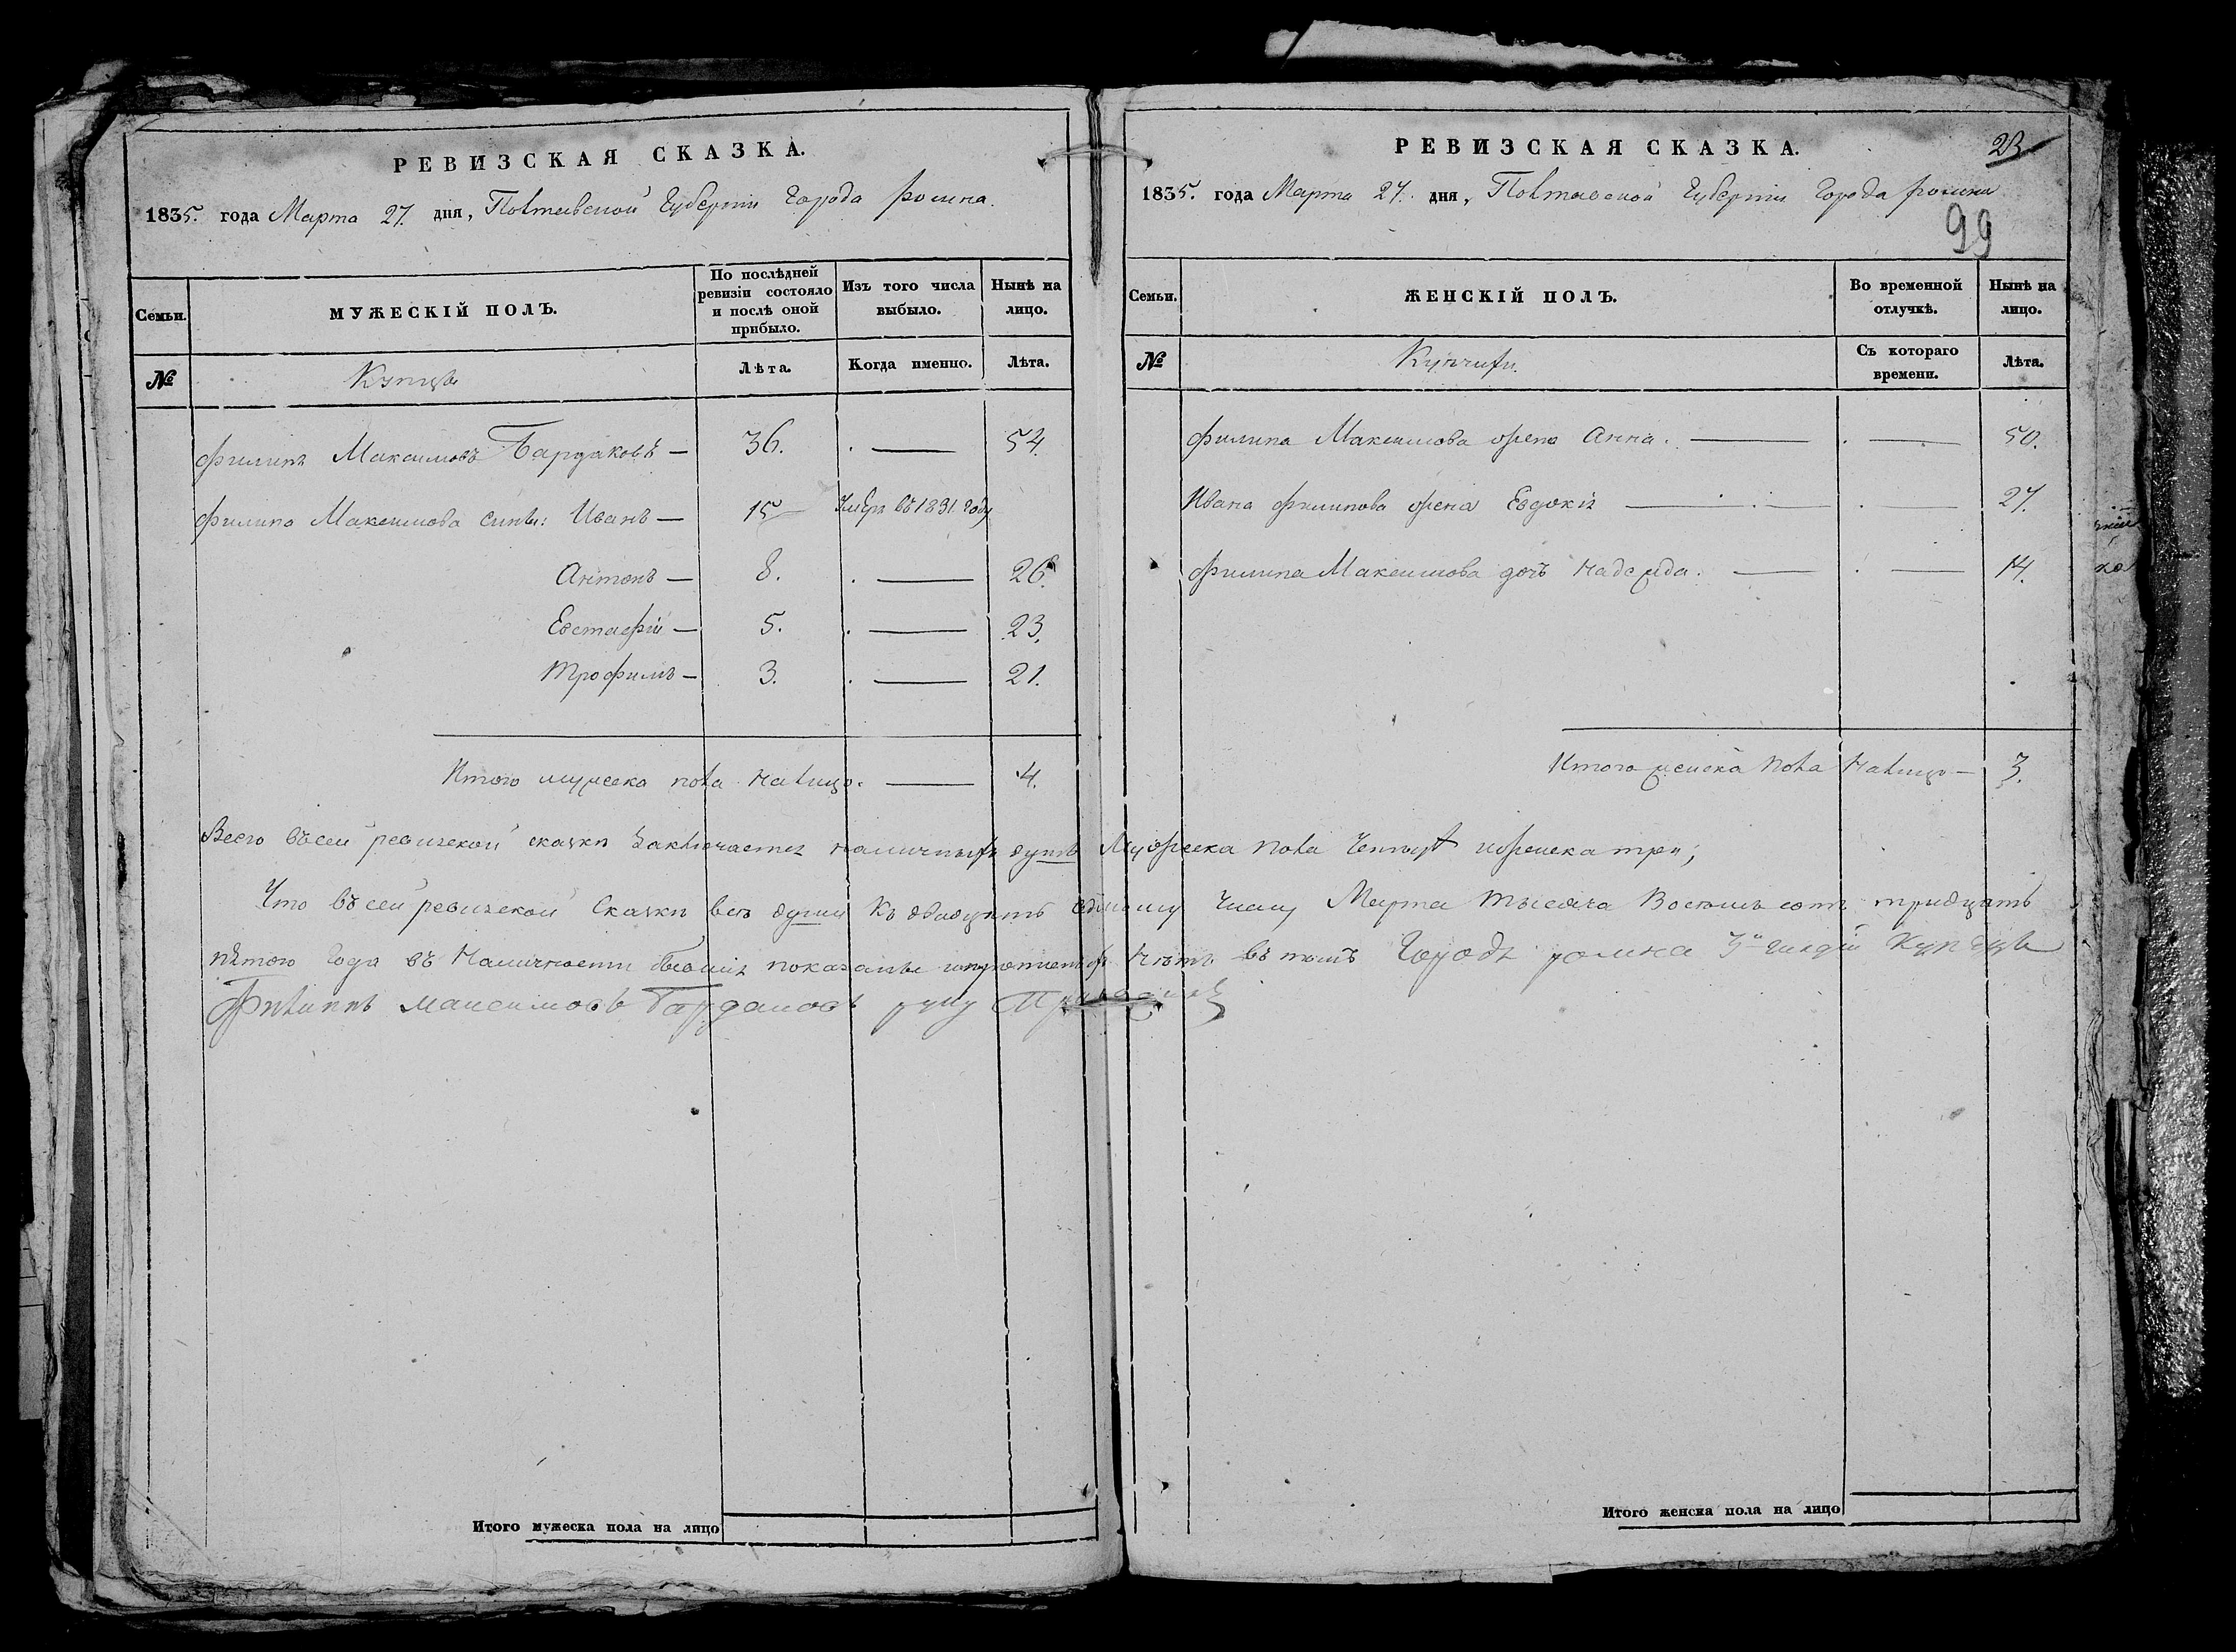 РЕВИЗСКАЯ СКАЗКА.
1835. года Марта 27. дня, Полтавской Губерніи Города Ромна.
Семьи.
МУЖЕСКІЙ ПОЛЪ.
По послѣдней ревизіи состояло и послѣ оной прибыло.
Изъ того числа выбыло.
Нынѣ на лицо.
№
Купцы
Лѣта.
Когда именно.
Лѣта.
Филипъ Максимовъ Бардаковъ — 36. — 54.
Филипа Максимова сыны: Иванъ — 15 Умеръ въ 1831. году
Антонъ — 8. — 26.
Евстафій — 5. — 23.
Трофимъ — 3. — 21.
Итого мужеска пола налицо. — 4.
РЕВИЗСКАЯ СКАЗКА.
23
1835. года Марта 27. дня, Полтавской Губерніи Города Ромна
99
Семьи.
ЖЕНСКІЙ ПОЛЪ.
Во временной отлучкѣ.
Нынѣ на лицо.
№
Купчихи.
Съ котораго времени.
Лѣта.
Филипа Максимова жена Анна. — 50.
Ивана Филипова жена Евдокія — 27.
Филипа Максимова дочь Надежда. — 14.
Итого женска пола налицо — 3.
Всего въ сей ревизской сказки заключается наличныхъ душъ Мужеска пола четыре и женска три;
Что въ сей ревизской Сказки всѣ души къ двадцать седмому числу Марта тысяча Восемь сотъ тридцать
пятого Года въ Наличности бывшія показаны и Нѣтъ въ томъ Города ромна 3й гилдіи Купецъ
Филиппъ Максимовъ Бардаковъ руку
Итого мужеска пола на лицо
Итого женска пола на лицо